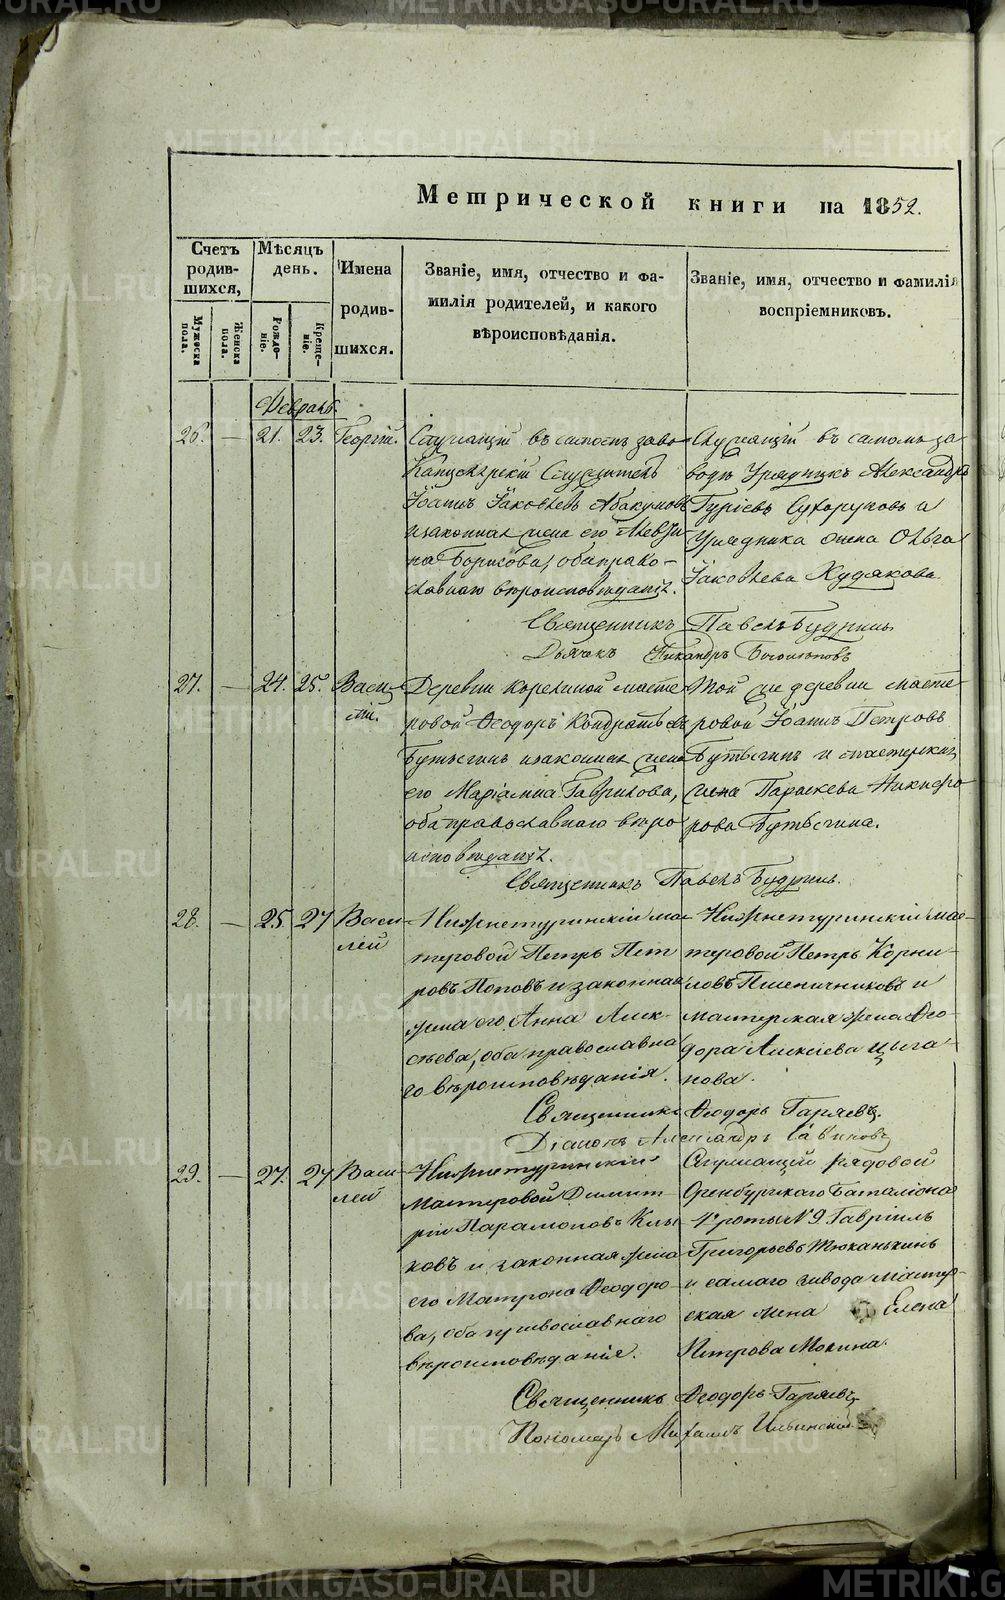 METRIKI.GASO-URAL.RU
Метрической книги на 1852.
Счетъ родив-шихся,
Мужеска пола.
Женска пола.
Мѣсяцъ день.
Рожде-ніе.
Креще-ніе.
Имена родив-шихся.
Званіе, имя, отчество и фа-
милія родителей, и какого
вѣроисповѣданія.
Званіе, имя, отчество и фамилія
воспріемниковъ.
Февраль.
26. — 21. 23. Георгій.
Служащій въ самомъ заво-
Канцелярскій Служитель
Іоаннъ Іаковлевъ Абакумовъ
и законная жена его Алевти-
на Борисова, оба право-
славнаго вѣроисповѣданія.
Служащій въ самомъ за-
водѣ Урядникъ Александръ
Гуріевъ Сухоруковъ и
Урядника жена Ольга
Іаковлева Худякова.
Священникъ Павелъ Будринъ
Дьячекъ Никандръ
27. — 24. 25. Васи-
лій.
Деревни Корелиной масте-
ровой Ѳеодоръ Кондратьевъ
Бутыгинъ и законная жена
его Маріамна Гаврилова,
оба православнаго вѣро-
исповѣданія.
Той же деревни масте-
ровой Іоаннъ Петровъ
Бутыгинъ и мастерская
жена Параскева Никифо-
рова Бутыгина.
Священникъ Павелъ Будринъ.
28. — 25. 27 Васи-
лей
Нижнетуринскій мас-
теровой Петръ Пет-
ровъ Поповъ и законная
жена его Анна Алек-
сѣева, оба православна-
го вѣроисповѣданія.
Нижнетуринскій мас-
теровой Петръ Корни-
ловъ Пшеничниковъ и
мастерская жена Ѳео-
дора Алексіева Цыга-
нова.
Священникъ Ѳеодоръ Гаряевъ.
Діаконъ Александръ Савиновъ
29. — 27. 27 Васи-
лей
Нижнетуринскій
мастеровой Димит-
рій Парамоновъ Клы-
ковъ и законная жена
его Матрона Ѳеодоро-
ва, оба православнаго
вѣроисповѣданія.
Служащій рядовой
Оренбургскаго Баталіона
роты № 9 Гавріилъ
Григорьевъ Тюканькинъ
и самаго завода мастер-
ская жена Елена
Петрова Мокина.
Священникъ Ѳеодоръ Гаряевъ
Пономарь Михаилъ Ильинскій